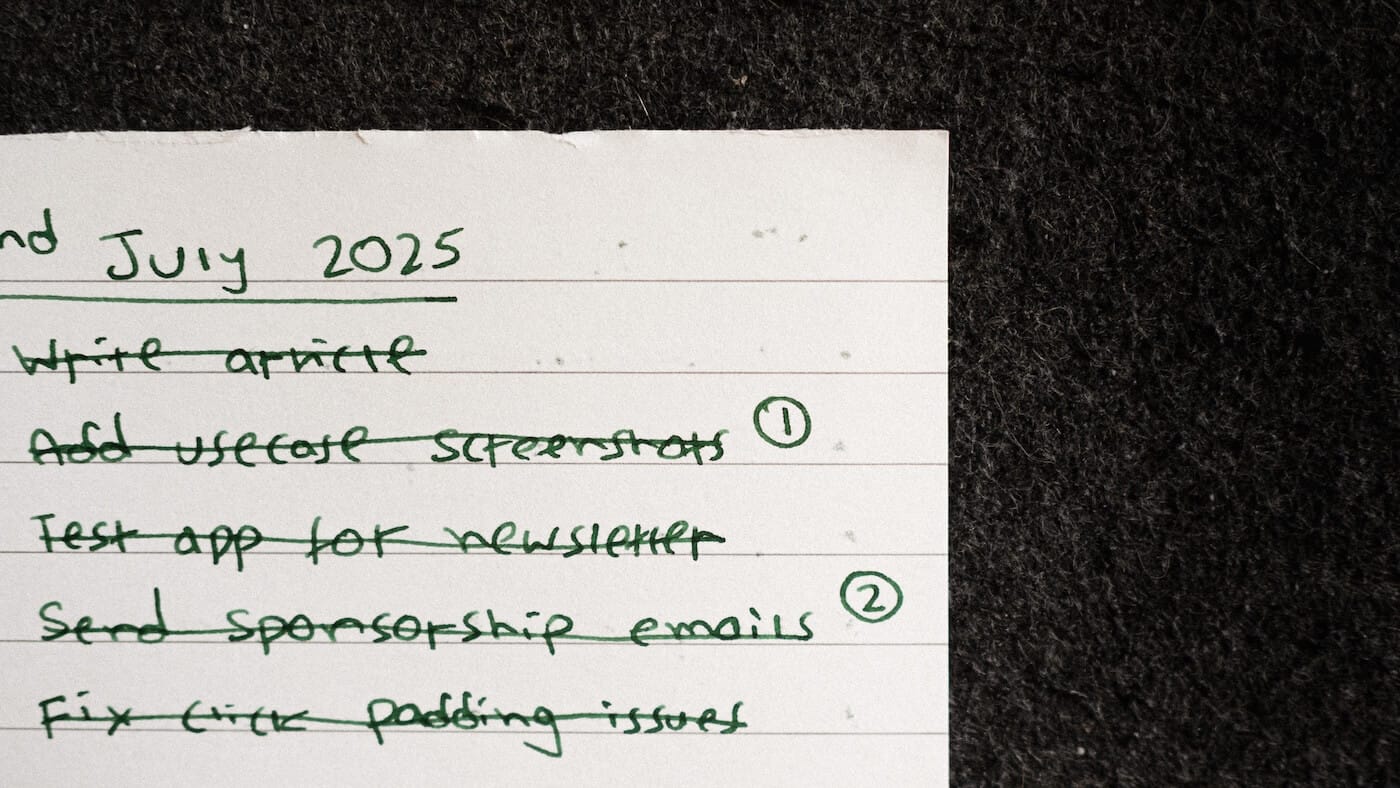 nd July 2025
Write article
Add usecase screenshots ①
Test app for newsletter
Send sponsorship emails ②
Fix click padding issues